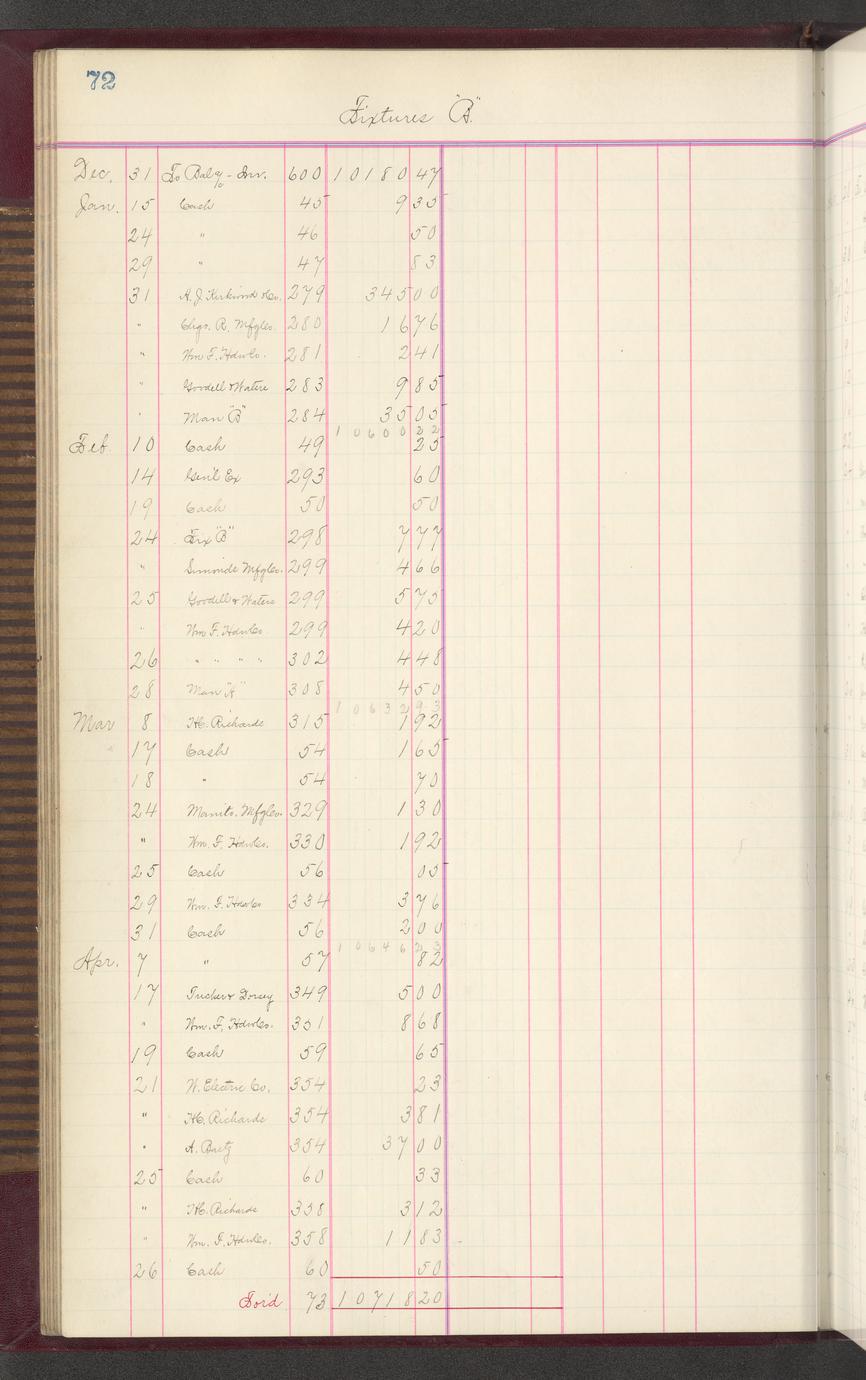 72
Fixtures "B"
Dec. 31 To Bal % - Inv. 600 10180 47
Jan. 15 Cash 45 9 35
24 " 46 50
29 " 47 83
31 A. J. Kirkwood & Co. 279 345 00
" Chgs. R. Mfg Co. 280 16 76
" Wm F. Hdw Co. 281 2 41
" Goodell & Waters 283 9 85
" Man "B" 284 35 05
10600 22
Feb. 10 Cash 49 25
14 Gen'l Ex 293 60
19 Cash 50 50
24 Fix "B" 298 7 77
" Simonds Mfg Co. 299 4 66
25 Goodell & Waters 299 5 75
" Wm F. Hdw Co 299 4 20
26 " " " " 302 4 48
28 Man "A" 308 4 50
10632 93
Mar 8 H. C. Richards 315 1 92
17 Cash 54 1 65
18 " 54 70
24 Manits. Mfg Co. 329 1 30
" Wm. F. Hdw Co. 330 1 92
25 Cash 56 05
29 Wm. F. Hdw Co 334 3 76
31 Cash 56 2 00
10646 23
Apr. 7 " 57 82
17 Tucker & Dorsey 349 5 00
" Wm. F. Hdw Co. 351 8 68
19 Cash 59 65
21 W. Electric Co. 354 23
" H. C. Richards 354 3 81
" A. 354 37 00
25 Cash 60 33
" H. C. Richards 358 3 12
" Wm. F. Hdw Co. 358 11 83
26 Cash 60 50
For'd 73 10718 20